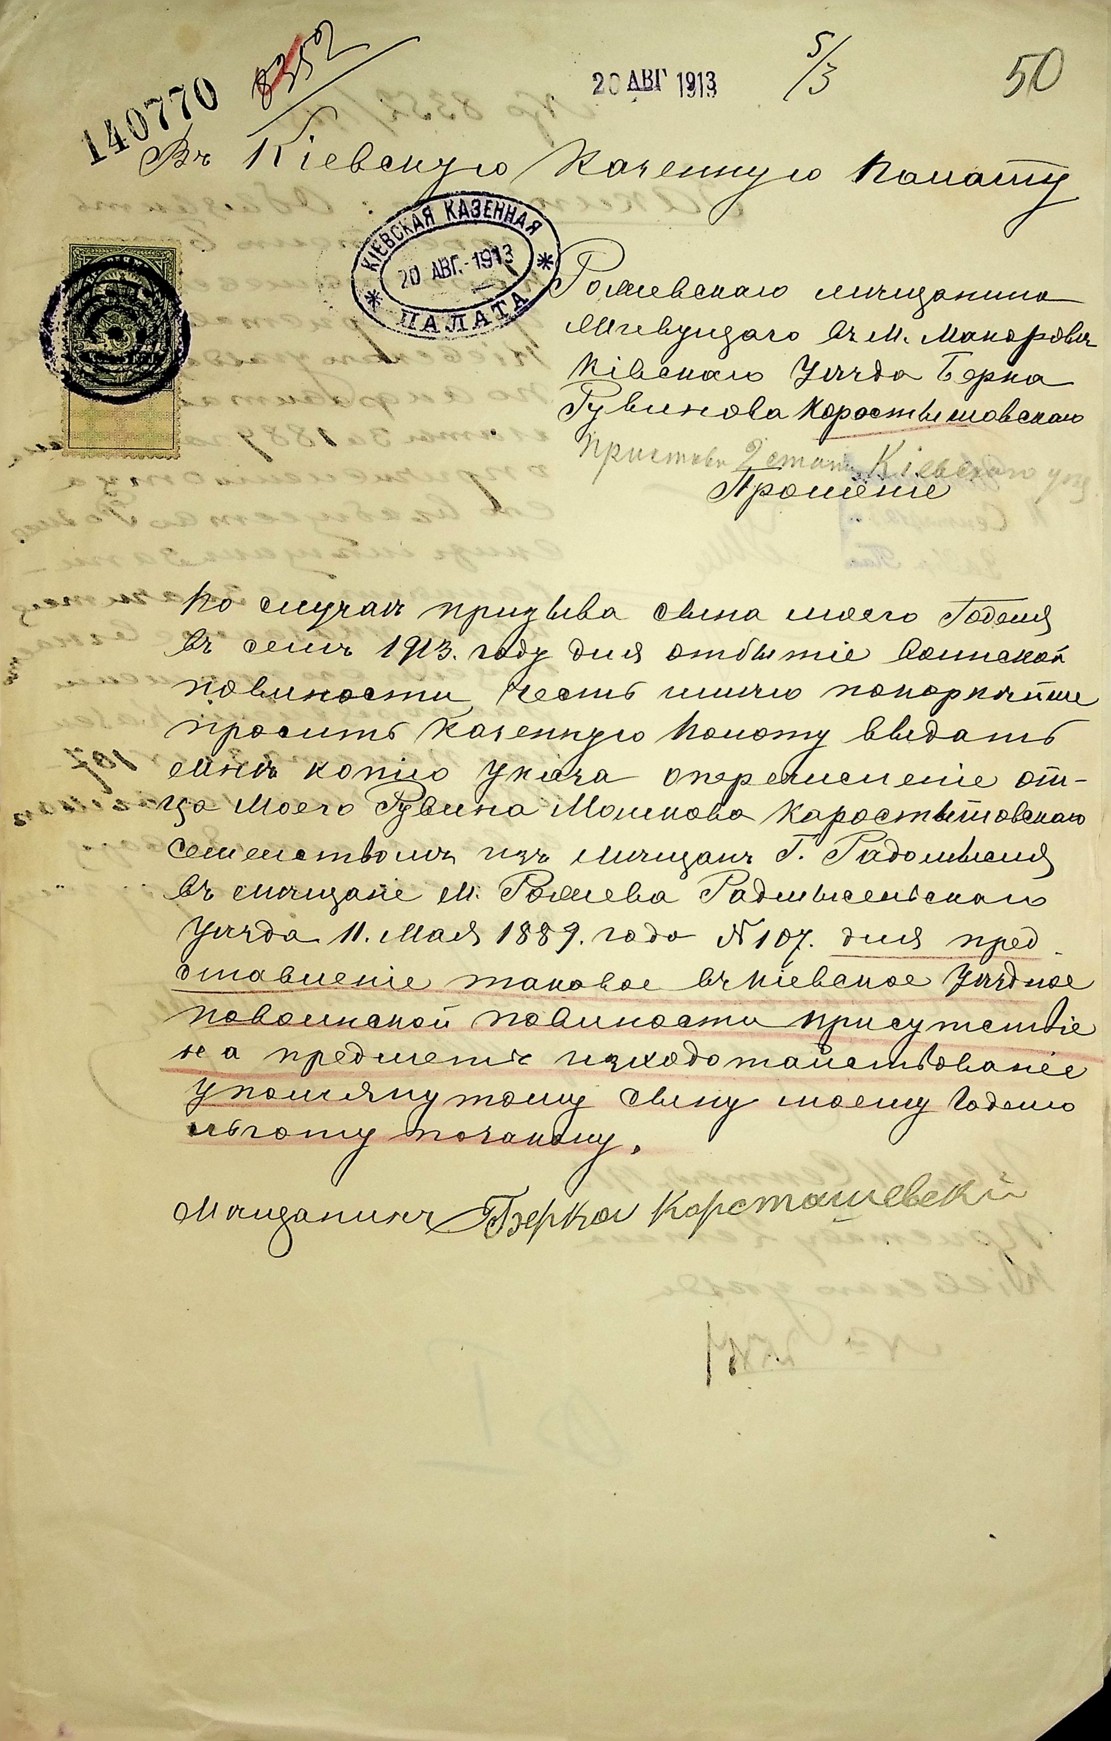 140770
8352
20 АВГ 1913
5/3
50
Въ Кіевскую Казенную Палату
КІЕВСКАЯ КАЗЕННАЯ
20 АВГ. 1913
ПАЛАТА
Рожевскаго мѣщанина
Живущаго въ м. Макаровѣ
Кіевскаго Уѣзда Берка
Рувинова Коростышовскаго
Приставу 2 стана Кіевскаго уѣз
Прошеніе
По случаю призыва сына моего Годеля
въ семъ 1913. году для отбытіе воинской
повиности, честь имѣю покорнѣйше
просить Казенную Полату выдать
мнѣ копію Указа оперечисленіе от-
ца Моего Рувина Мошкова Каростышовскаго
семействомъ изъ мѣщанъ Г. Радомысля
въ мѣщане М. Рожева Радмысельскаго
Уѣзда 11. Мая 1889. года №107. для пред
ставленіе таковое въ Кіевское Уѣздное
повоинской повиности присутствіе
на предметъ изходотайствованіе
упомянутому сыну моему Годелю
льготу по закону.
Мѣщанинъ Берка Корсташевскій